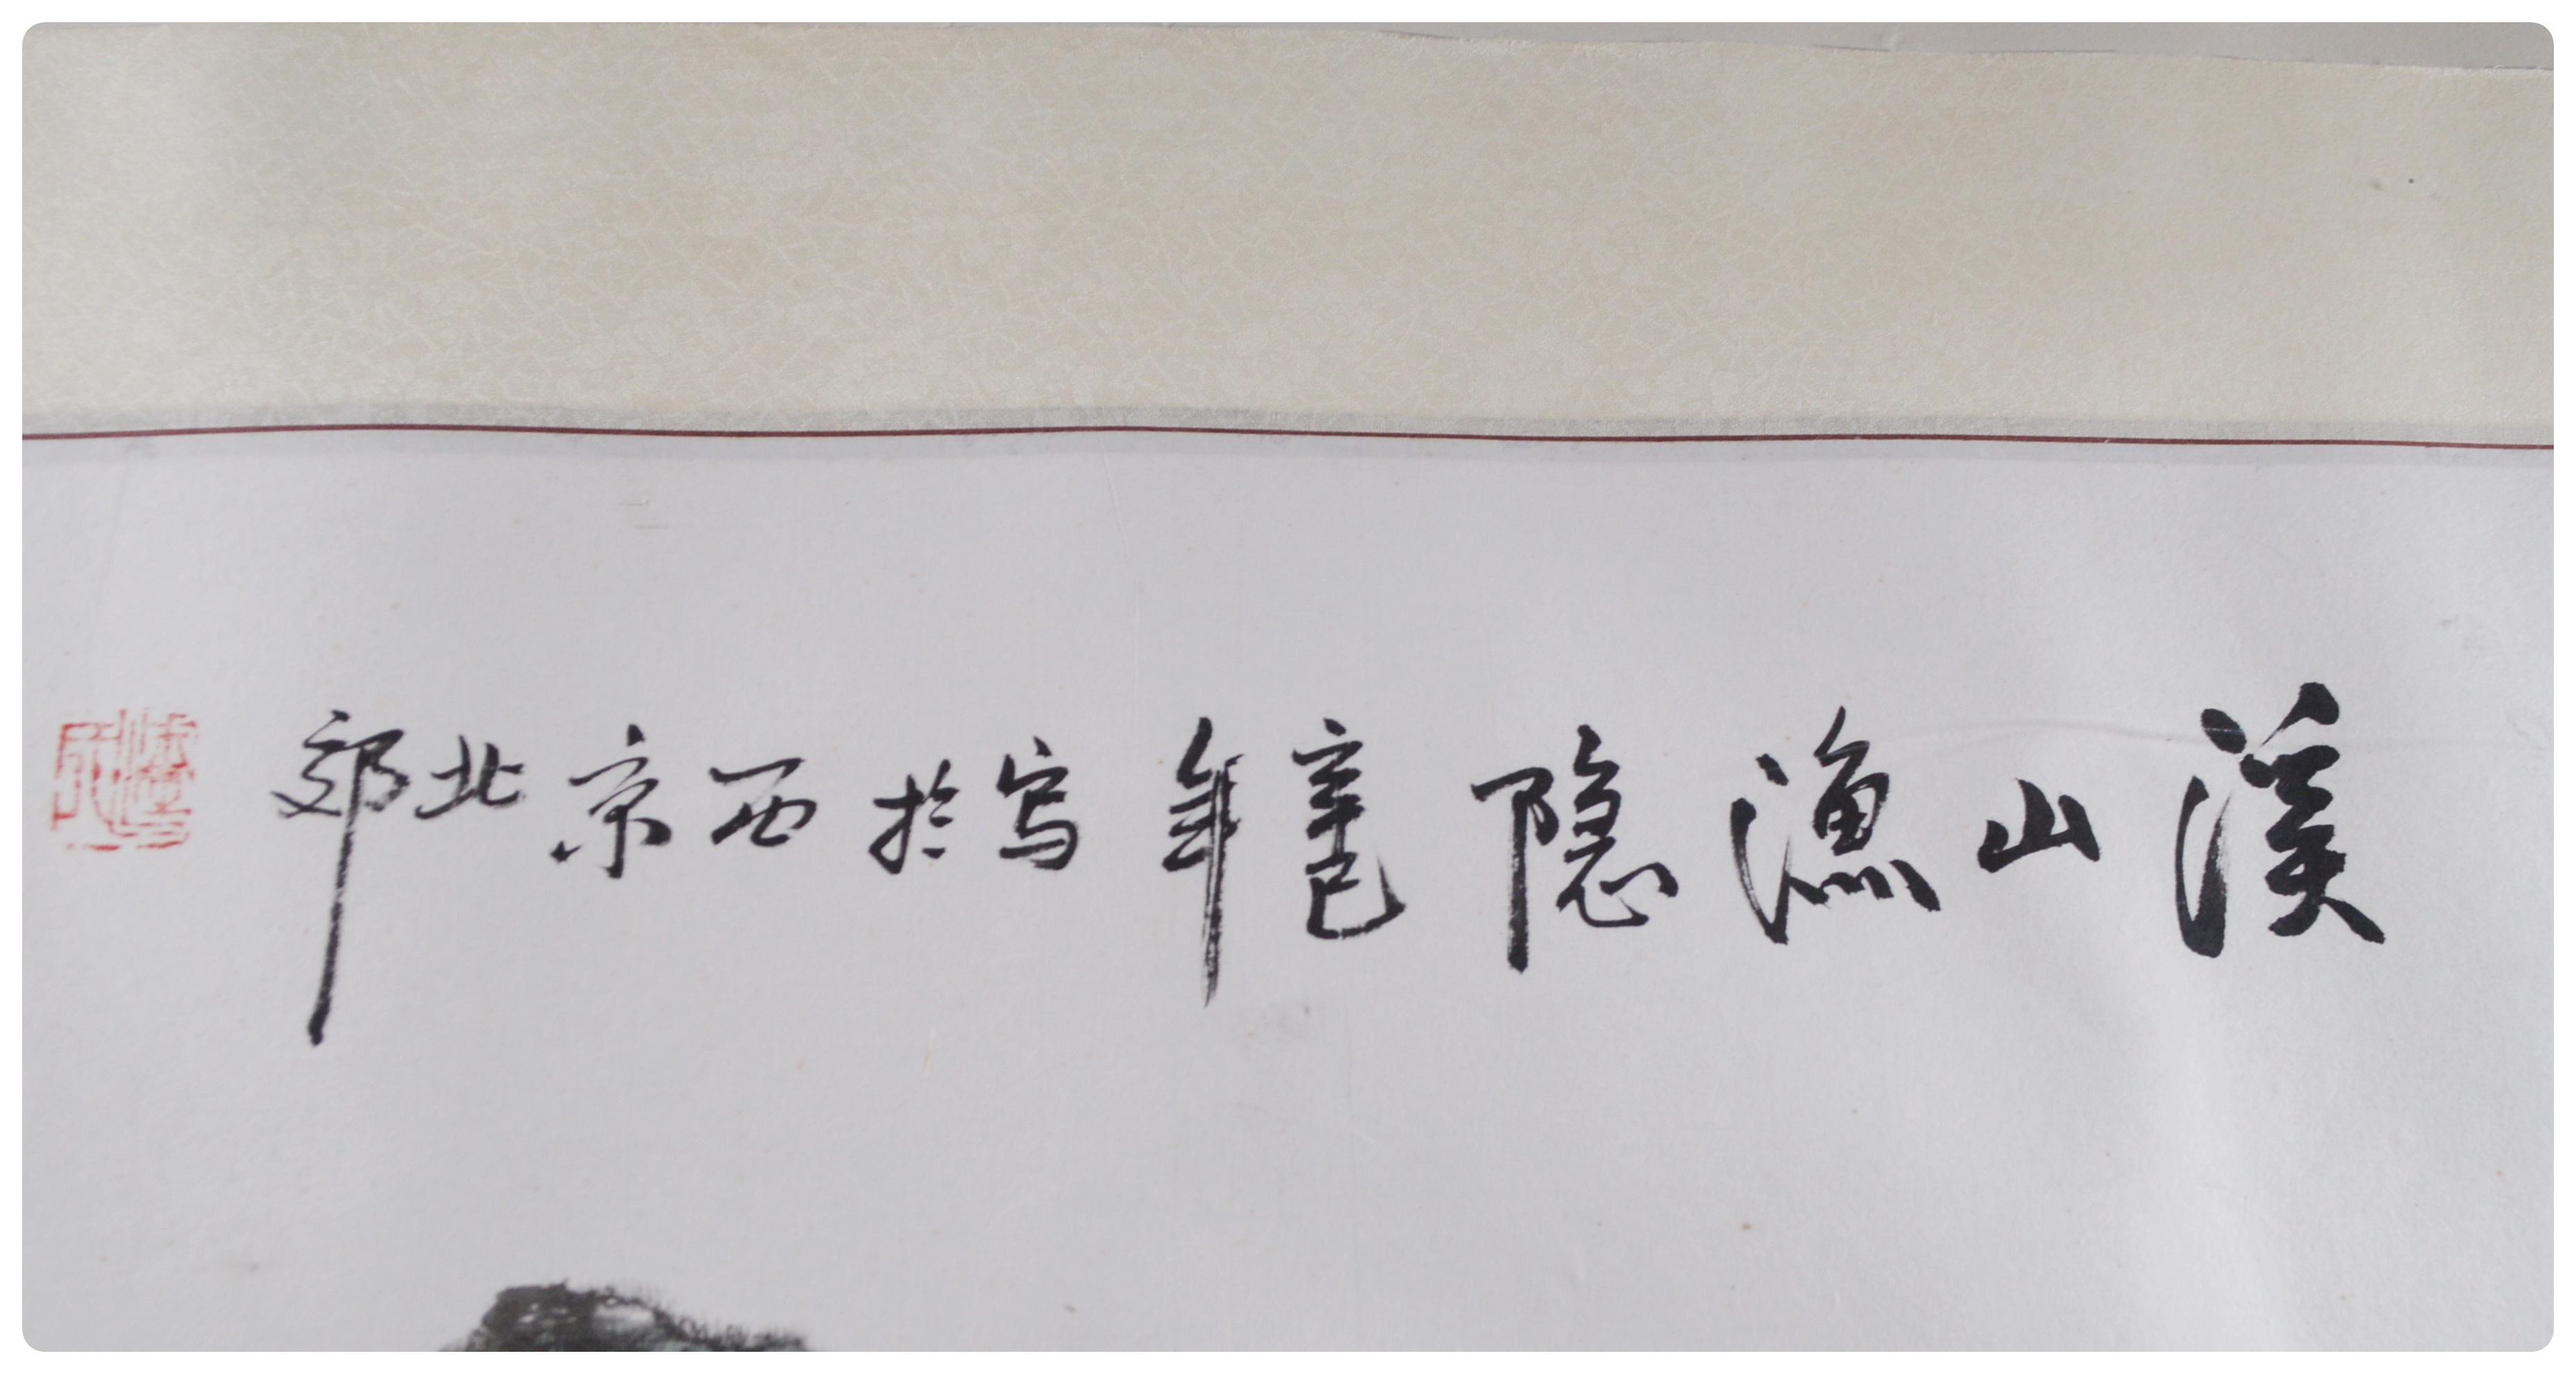 溪山漁隐辛巳年写於西京北郊